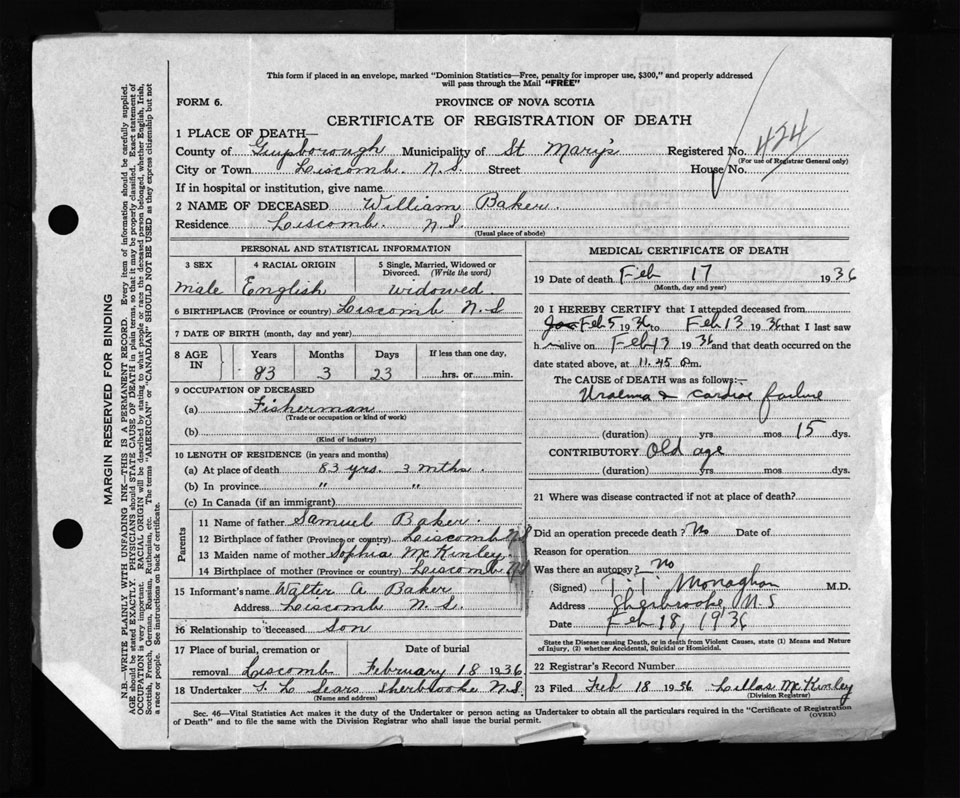 This form if placed in an envelope, marked "Dominion Statistics—Free, penalty for improper use, $300," and properly addressed
will pass through the Mail "FREE"
FORM 6.
PROVINCE OF NOVA SCOTIA
CERTIFICATE OF REGISTRATION OF DEATH
1 PLACE OF DEATH—
County of Guysborough Municipality of St Mary's Registered No. 424
(For use of Registrar General only)
City or Town Liscomb. N.S. Street House No.
If in hospital or institution, give name
2 NAME OF DECEASED William Baker.
Residence Liscomb. N.S.
(Usual place of abode)
PERSONAL AND STATISTICAL INFORMATION
3 SEX 4 RACIAL ORIGIN 5 Single, Married, Widowed or
Divorced. (Write the word)
male English widowed.
6 BIRTHPLACE (Province or country) Liscomb N.S
7 DATE OF BIRTH (month, day and year)
8 AGE IN Years Months Days If less than one day,
83 3 23 hrs. or min.
9 OCCUPATION OF DECEASED
(a) Fisherman
(Trade or occupation or kind of work)
(b)
(Kind of industry)
10 LENGTH OF RESIDENCE (in years and months)
(a) At place of death 83 yrs. 3 mths.
(b) In province " "
(c) In Canada (if an immigrant)
Parents
11 Name of father Samuel Baker.
12 Birthplace of father (Province or country) Liscomb N S
13 Maiden name of mother Sophia McKinley.
14 Birthplace of mother (Province or country) Liscomb N S
15 Informant's name Walter A Baker
Address Liscomb N.S.
16 Relationship to deceased Son
17 Place of burial, cremation or Date of burial
removal Liscomb February 18 1936
18 Undertaker T. L Sears Sherbrooke N.S.
(Name and address)
MEDICAL CERTIFICATE OF DEATH
19 Date of death Feb 17 1936
(Month, day and year)
20 I HEREBY CERTIFY that I attended deceased from
Feb 5 1936 to Feb 13 1936 that I last saw
h im alive on Feb 13 1936 and that death occurred on the
date stated above, at 11.45 m.
The CAUSE OF DEATH was as follows:—
Uraemia & cardiac failure
(duration) yrs. mos 15 dys.
CONTRIBUTORY Old age
(duration) yrs. mos dys.
21 Where was disease contracted if not at place of death?
Did an operation precede death? No Date of
Reason for operation
Was there an autopsy? No
(Signed) Monaghan M.D.
Address Sherbrooke, N.S
Date Feb 18, 1936
State the Disease causing Death, or in death from Violent Causes, state (1) Means and Nature
of Injury, (2) whether Accidental, Suicidal or Homicidal.
22 Registrar's Record Number
23 Filed Feb 18 1936 Lillas McKinley
(Division Registrar)
Sec. 46—Vital Statistics Act makes it the duty of the Undertaker or person acting as Undertaker to obtain all the particulars required in the "Certificate of Registration
of Death" and to file the same with the Division Registrar who shall issue the burial permit.
(OVER)
MARGIN RESERVED FOR BINDING
N.B.—WRITE PLAINLY WITH UNFADING INK—THIS IS A PERMANENT RECORD. Every item of information should be carefully supplied.
AGE should be stated EXACTLY. PHYSICIANS should STATE CAUSE OF DEATH in plain terms, so that it may be properly classified. Exact statement of
OCCUPATION is very important. RACIAL ORIGIN will be described by stating to what people or race the deceased person belonged, whether English, Irish,
Scottish, French, German, Russian, Ruthenian, etc. The terms "AMERICAN" or "CANADIAN" SHOULD NOT BE USED as they express citizenship but not
a race or people. See instructions on back of certificate.